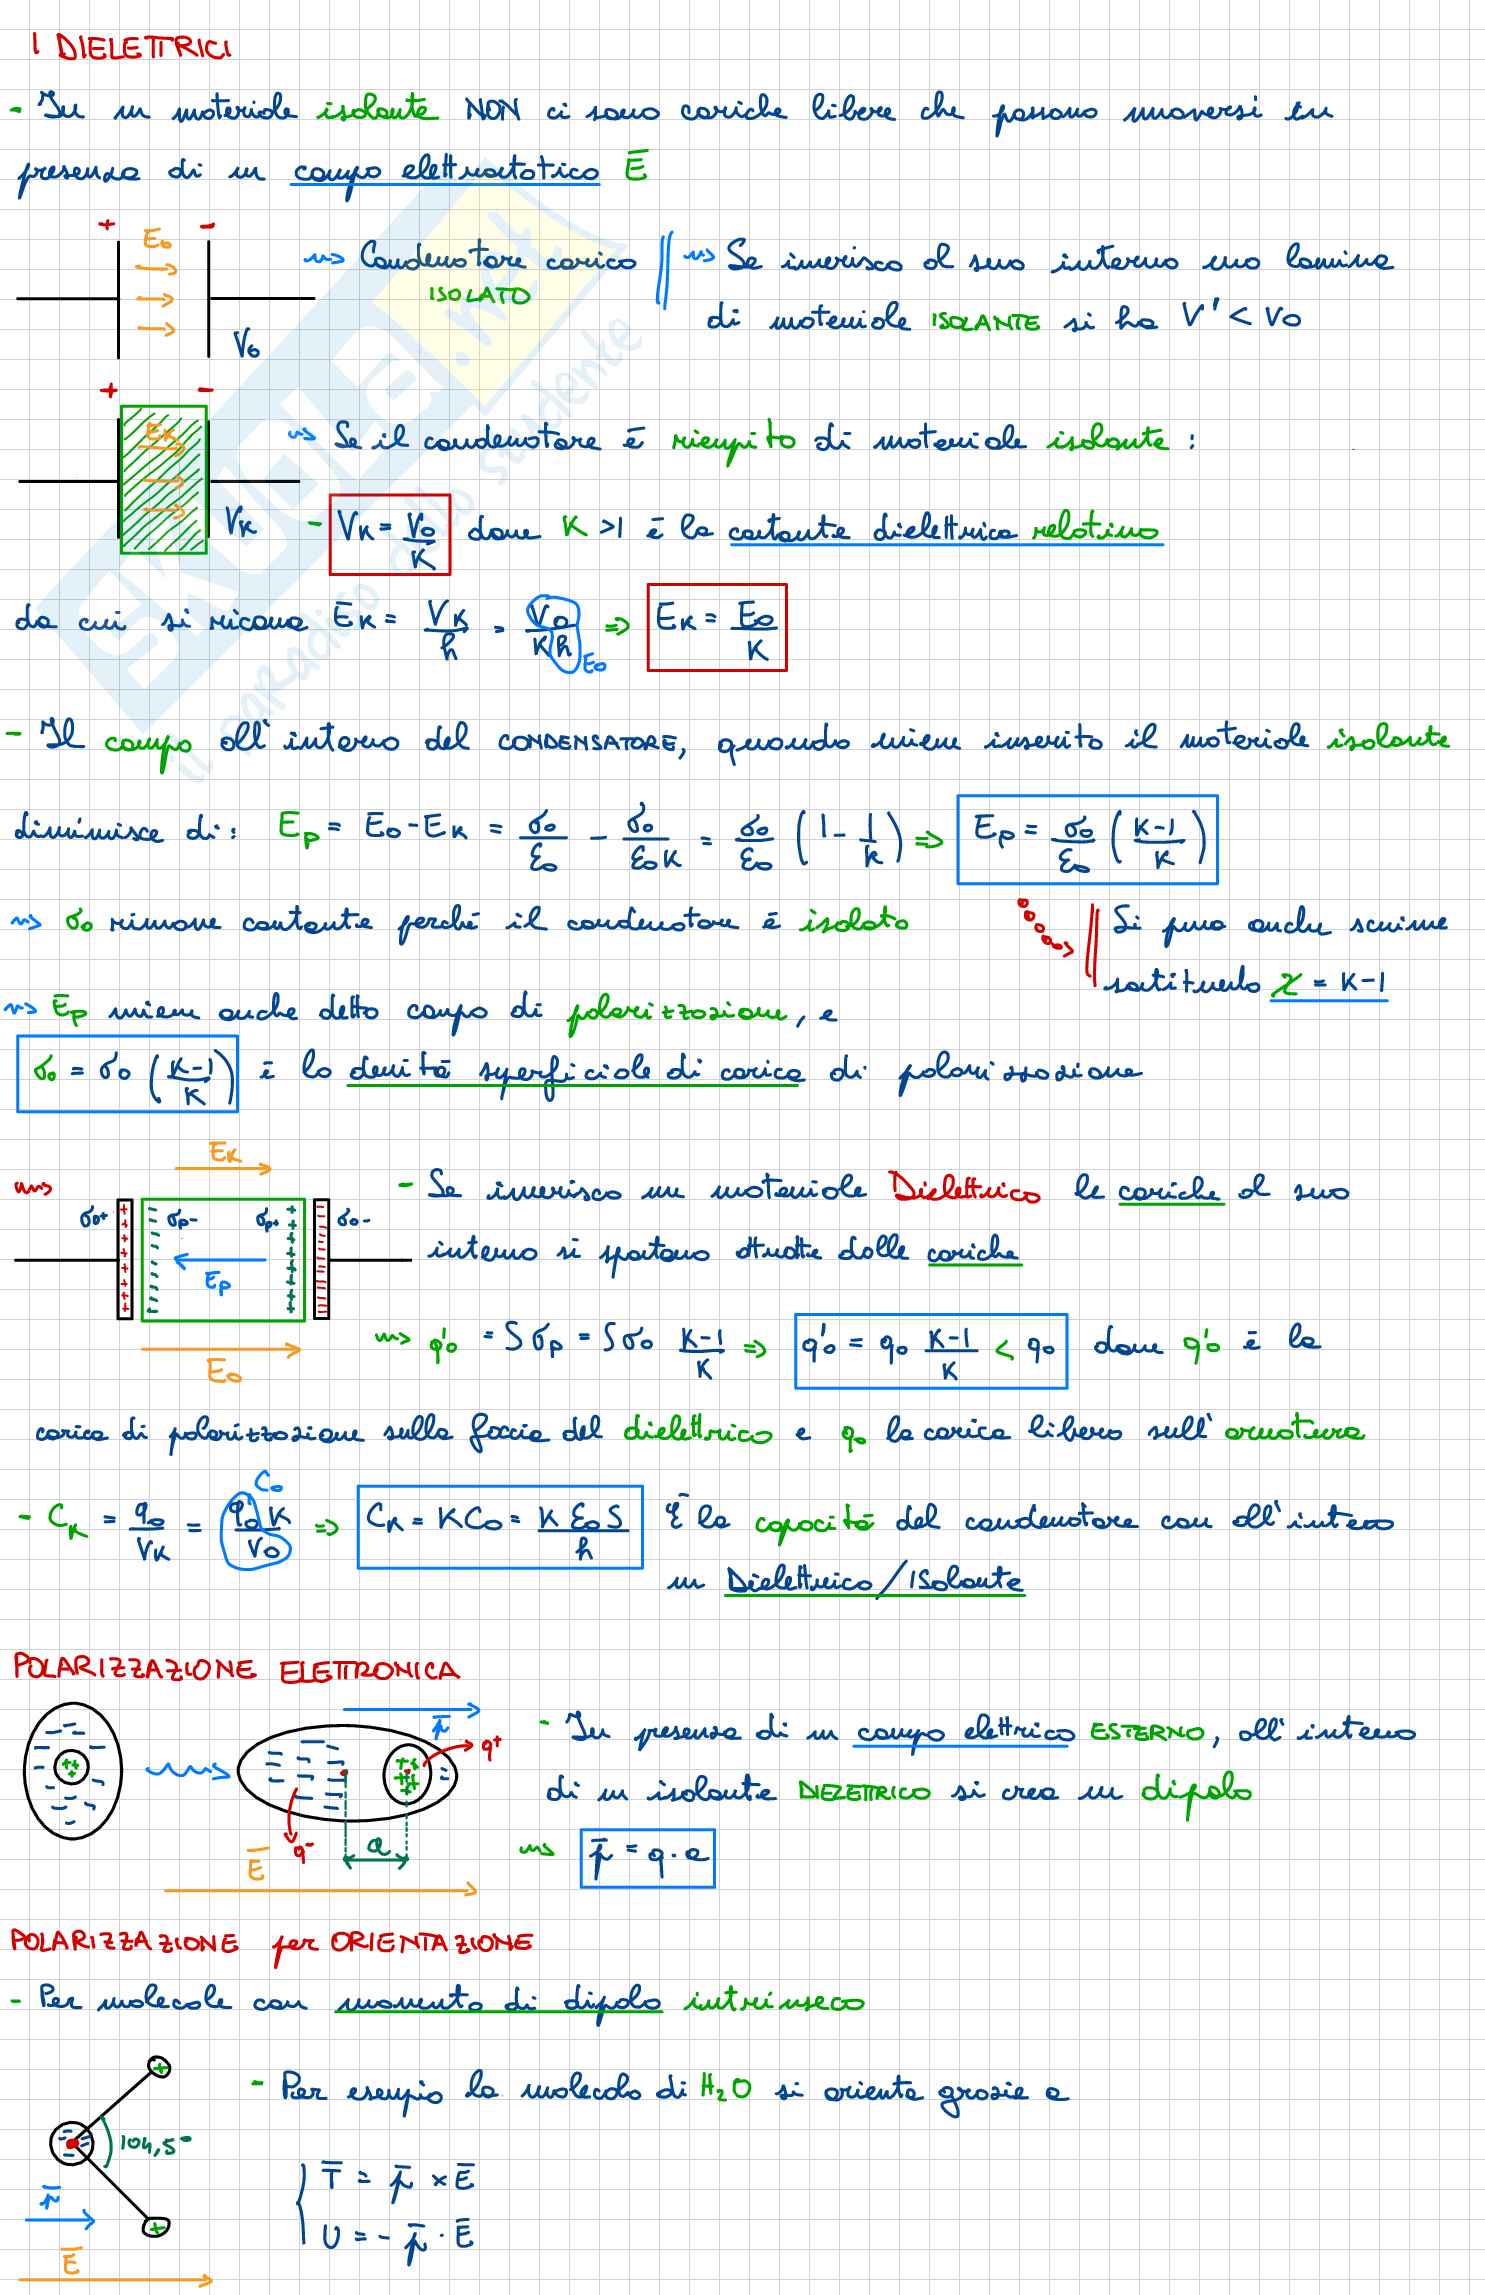 I DIELETTRICI
- In un materiale isolante NON ci sono cariche libere che possono muoversi in
presenza di un campo elettrostatico E̅
+ -
E₀
V₀
⇝ Condensatore carico
ISOLATO
⇝ Se inserisco al suo interno una lamina
di materiale ISOLANTE si ha V' < V₀
+ -
Eκ
Vκ
⇝ Se il condensatore è riempito di materiale isolante:
- Vκ = V₀/K dove K > 1 è la costante dielettrica relativa
da cui si ricava Eκ = Vκ/h = V₀/Kh ⇒ Eκ = E₀/K
E₀
- Il campo all'interno del CONDENSATORE, quando viene inserito il materiale isolante
diminuisce di: Ep = E₀ - Eκ = σ₀/ε₀ - σ₀/ε₀K = σ₀/ε₀ (1 - 1/K) ⇒ Ep = σ₀/ε₀ (K-1/K)
⇝ σ₀ rimane costante perché il condensatore è isolato
Si può anche scrivere
sostituendo χ = K-1
⇝ E̅p viene anche detto campo di polarizzazione, e
σ₀ = σ₀ (K-1/K) è la densità superficiale di carica di polarizzazione
Eκ
σ₀+ σp- σp+ σ₀-
Ep
E₀
- Se inserisco un materiale Dielettrico le cariche al suo
interno si spostano attratte dalle cariche
⇝ q'₀ = Sσp = Sσ₀ K-1/K ⇒ q'₀ = q₀ K-1/K < q₀ dove q'₀ è la
carica di polarizzazione sulla faccia del dielettrico e q₀ la carica libera sull'armatura
C₀
- Cκ = q₀/Vκ = q₀K/V₀ ⇒ Cκ = KC₀ = Kε₀S/h È la capacità del condensatore con all'interno
un Dielettrico/ISolante
POLARIZZAZIONE ELETTRONICA
p̅
q⁺
q⁻
a
E̅
- In presenza di un campo elettrico ESTERNO, all'interno
di un isolante DIELETTRICO si crea un dipolo
⇝ p̅ = q·a
POLARIZZAZIONE per ORIENTAZIONE
- Per molecole con momento di dipolo intrinseco
+
104,5°
+
p̅
E̅
- Per esempio la molecola di H₂O si orienta grazie a
T̅ = p̅ × E̅
U = - p̅ · E̅
SKUOLA.net
il paradiso dello studente